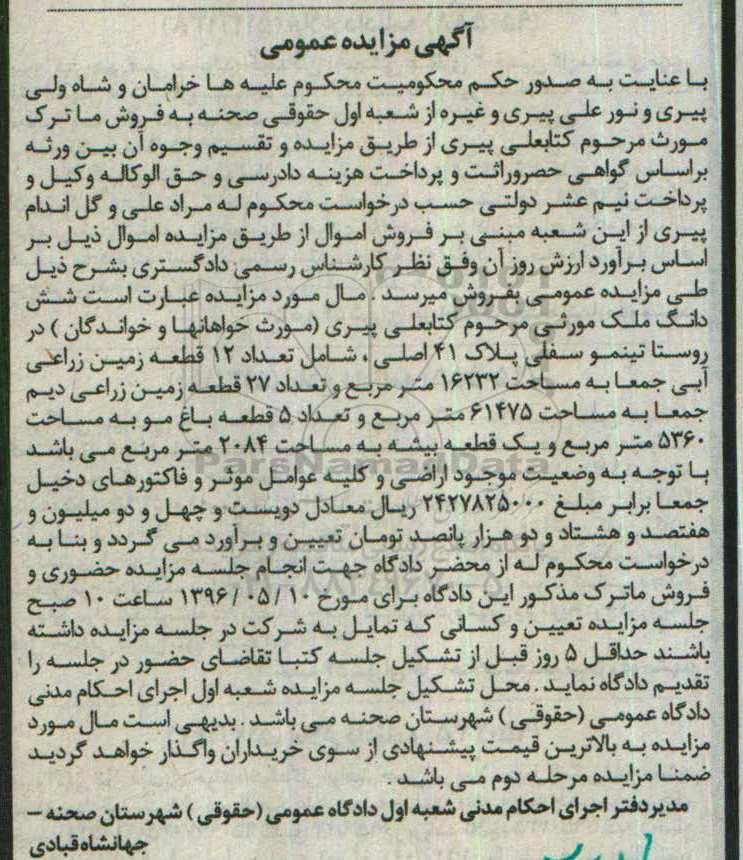 آگهی مزایده عمومی
با عنایت به صدور حکم محکومیت محکوم علیه ها خرامان و شاه ولی
پیری و نور علی پیری و غیره از شعبه اول حقوقی صحنه به فروش ما ترک
مورث مرحوم کتابعلی پیری از طریق مزایده و تقسیم وجوه آن بین ورثه
براساس گواهی حصروراثت و پرداخت هزینه دادرسی و حق الوکاله وکیل و
پرداخت نیم عشر دولتی حسب درخواست محکوم له مراد علی و گل اندام
پیری از این شعبه مبنی بر فروش اموال از طریق مزایده اموال ذیل بر
اساس برآورد ارزش روز آن وفق نظر کارشناس رسمی دادگستری بشرح ذیل
طی مزایده عمومی بفروش میرسد . مال مورد مزایده عبارت است شش
دانگ ملک مورثی مرحوم کتابعلی پیری (مورث خواهانها و خواندگان ) در
روستا تینمو سفلی پلاک ۴۱ اصلی ، شامل تعداد ۱۲ قطعه زمین زراعی
آبی جمعا به مساحت ۱۶۲۳۲ متر مربع و تعداد ۲۷ قطعه زمین زراعی دیم
جمعا به مساحت ۶۱۴۷۵ متر مربع و تعداد ۵ قطعه باغ مو به مساحت
۵۳۶۰ متر مربع و یک قطعه بیشه به مساحت ۲۰۸۴ متر مربع می باشد
با توجه به وضعیت موجود اراضی و کلیه عوامل موثر و فاکتورهای دخیل
جمعا برابر مبلغ ۲۴۲۷۸۲۵۰۰۰ ریال معادل دویست و چهل و دو میلیون و
هفتصد و هشتاد و دو هزار پانصد تومان تعیین و برآورد می گردد و بنا به
درخواست محکوم له از محضر دادگاه جهت انجام جلسه مزایده حضوری و
فروش ماترک مذکور این دادگاه برای مورخ ۱۰ /۰۵ /۱۳۹۶ ساعت ۱۰ صبح
جلسه مزایده تعیین و کسانی که تمایل به شرکت در جلسه مزایده داشته
باشند حداقل ۵ روز قبل از تشکیل جلسه کتبا تقاضای حضور در جلسه را
تقدیم دادگاه نماید . محل تشکیل جلسه مزایده شعبه اول اجرای احکام مدنی
دادگاه عمومی (حقوقی ) شهرستان صحنه می باشد . بدیهی است مال مورد
مزایده به بالاترین قیمت پیشنهادی از سوی خریداران واگذار خواهد گردید
ضمنا مزایده مرحله دوم می باشد .
مدیر دفتر اجرای احکام مدنی شعبه اول دادگاه عمومی (حقوقی ) شهرستان صحنه –
جهانشاه قبادی
ParsNamadData